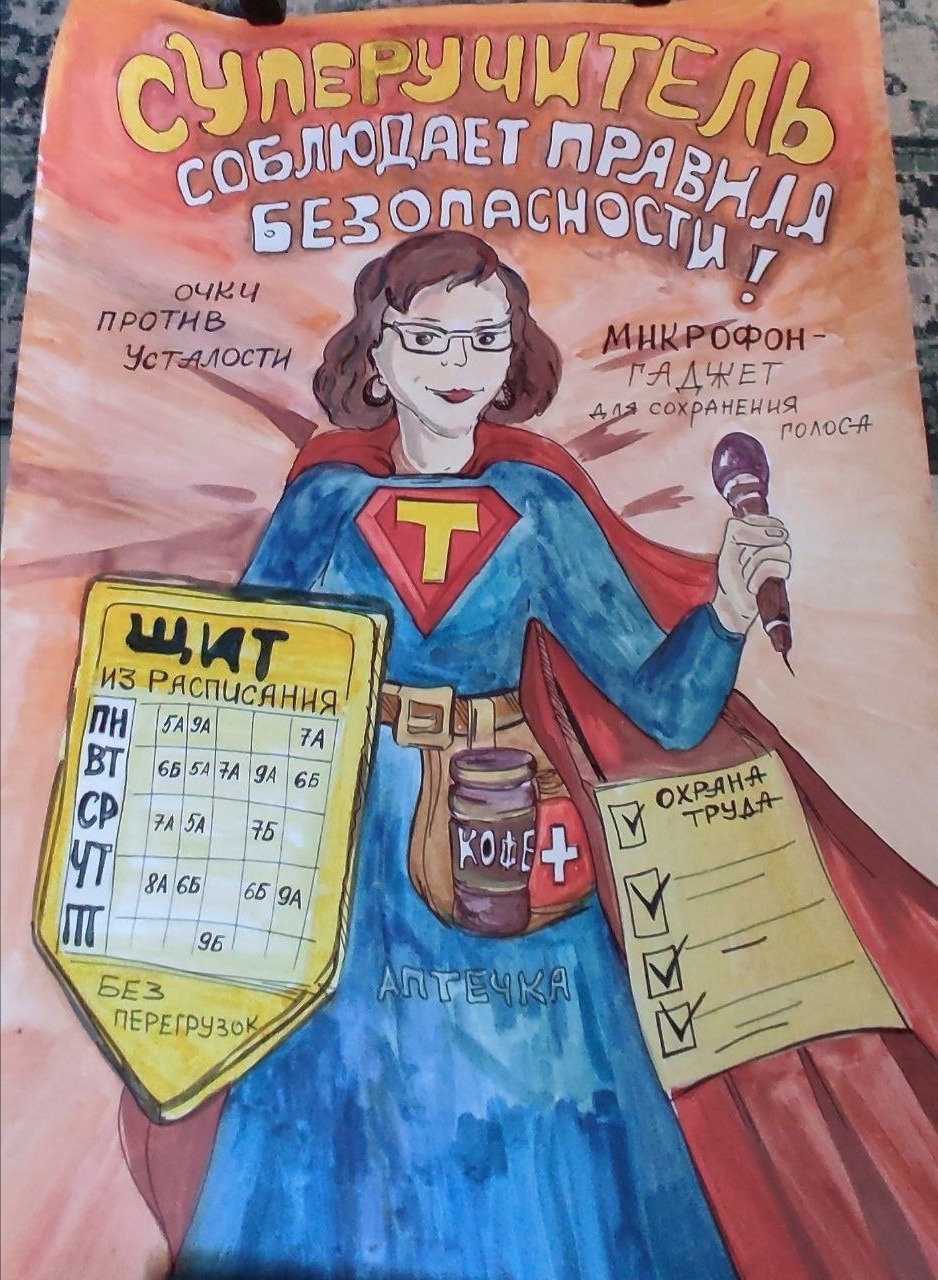 СУПЕРУЧИТЕЛЬ
СОБЛЮДАЕТ ПРАВИЛА
БЕЗОПАСНОСТИ!
ОЧКИ
ПРОТИВ
УСТАЛОСТИ
МИКРОФОН-
ГАДЖЕТ
ДЛЯ СОХРАНЕНИЯ
ГОЛОСА
Т
ЩИТ
ИЗ РАСПИСАНИЯ
ПН 5А 9А 7А
ВТ 6Б 5А 7А 9А 6Б
СР 7А 5А 7Б
ЧТ 8А 6Б 6Б 9А
ПТ 9Б
БЕЗ
ПЕРЕГРУЗОК
КОФЕ
АПТЕЧКА
ОХРАНА
ТРУДА